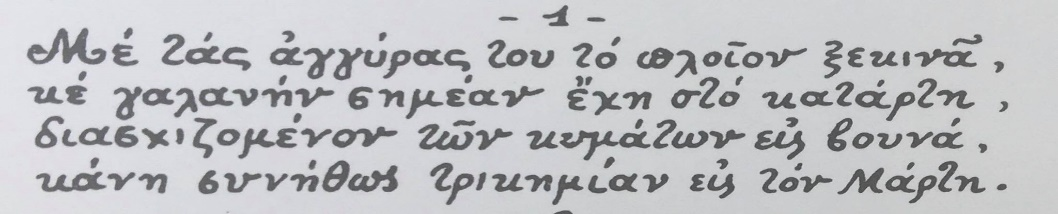 - 1 -
Μέ τάς ἀγγύρας του τό πλοῖον ξεκινᾶ,
κέ γαλανήν σημέαν ἔχη στό κατάρτη,
διασχιζομένον τῶν κυμάτων εἰς βουνά,
κάνη συνήθως τρικημίαν εἰς τόν Μάρτη.